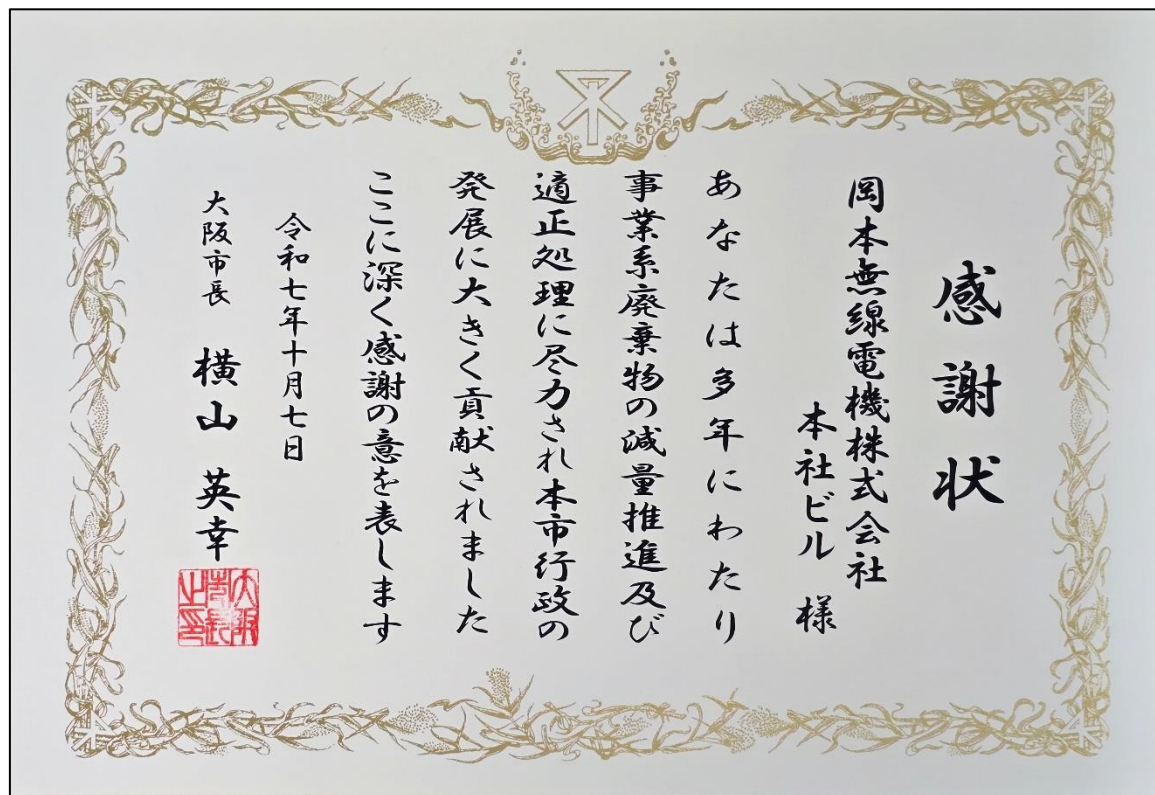 感謝状
岡本無線電機株式会社
本社ビル 様
あなたは多年にわたり
事業系廃棄物の減量推進及び
適正処理に尽力され本市行政の
発展に大きく貢献されました
ここに深く感謝の意を表します
令和七年十月七日
大阪市長 横山 英幸
大阪市長之印